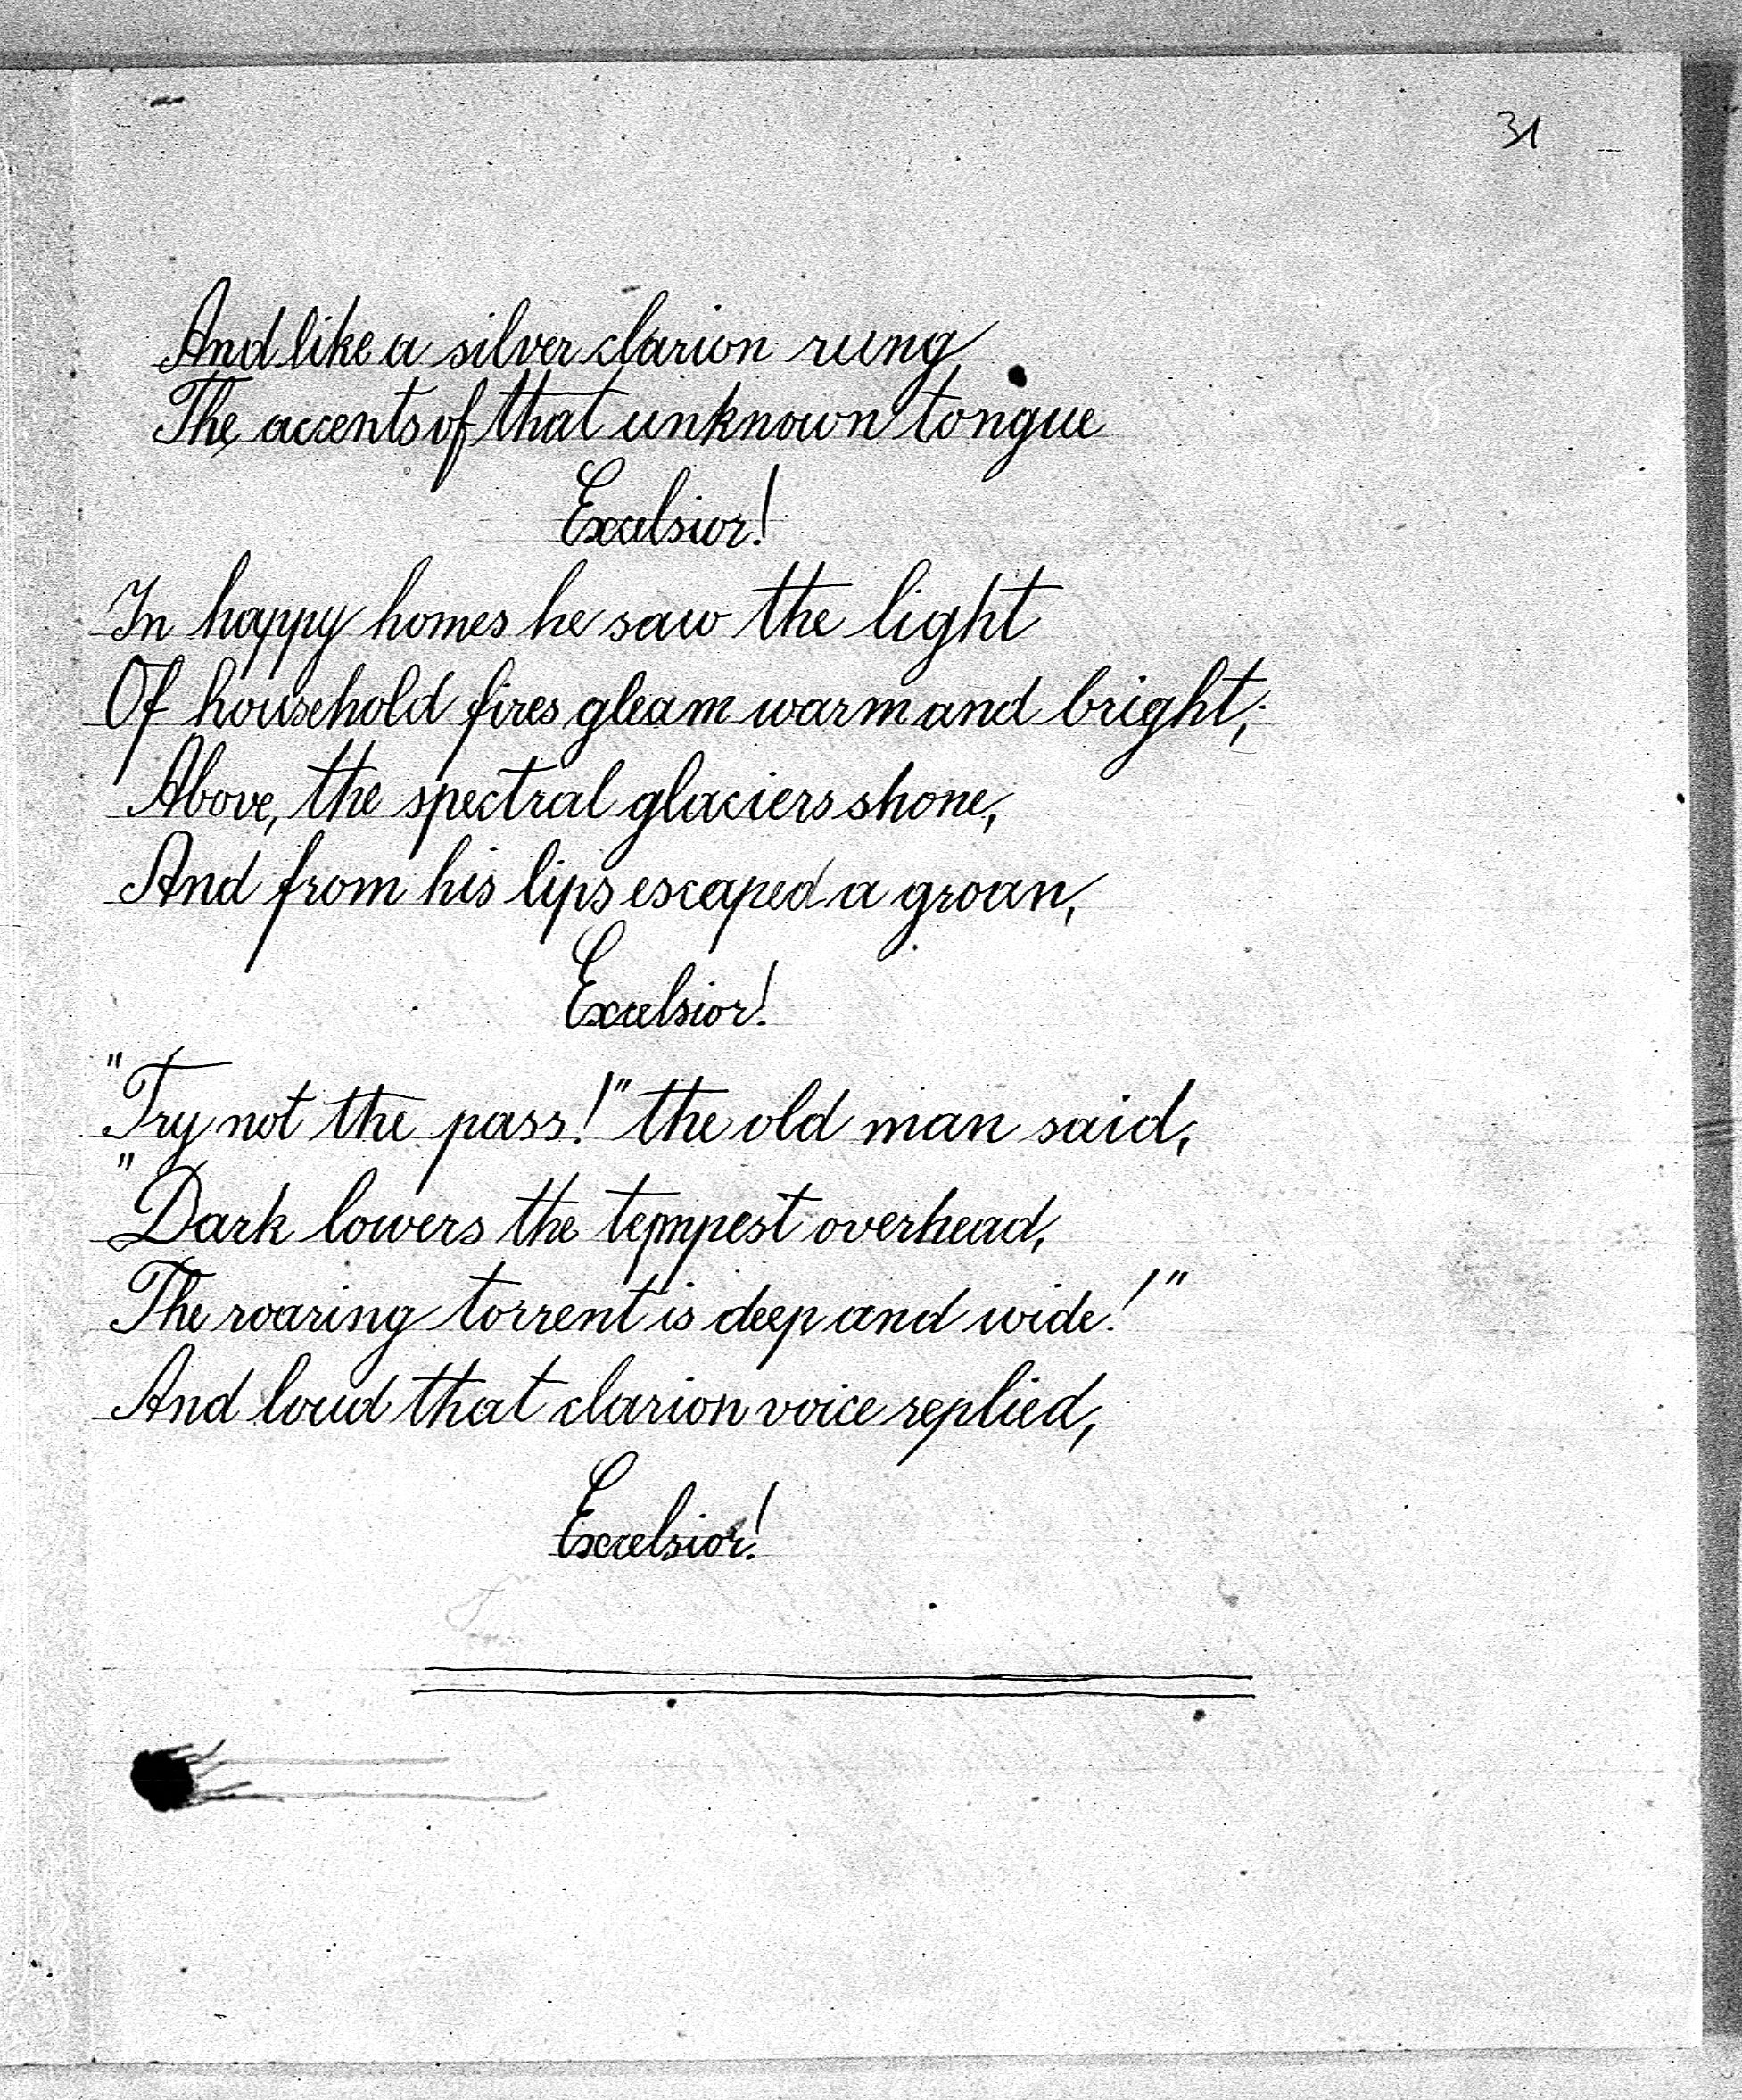 31
And like a silver clarion rung
The accents of that unknown tongue
Excelsior!
In happy homes he saw the light
Of household fires gleam warm and bright;
Above, the spectral glaciers shone,
And from his lips escaped a groan,
Excelsior!
"Try not the pass!" the old man said,
"Dark lowers the tempest overhead,
The roaring torrent is deep and wide!"
And loud that clarion voice replied,
Excelsior!